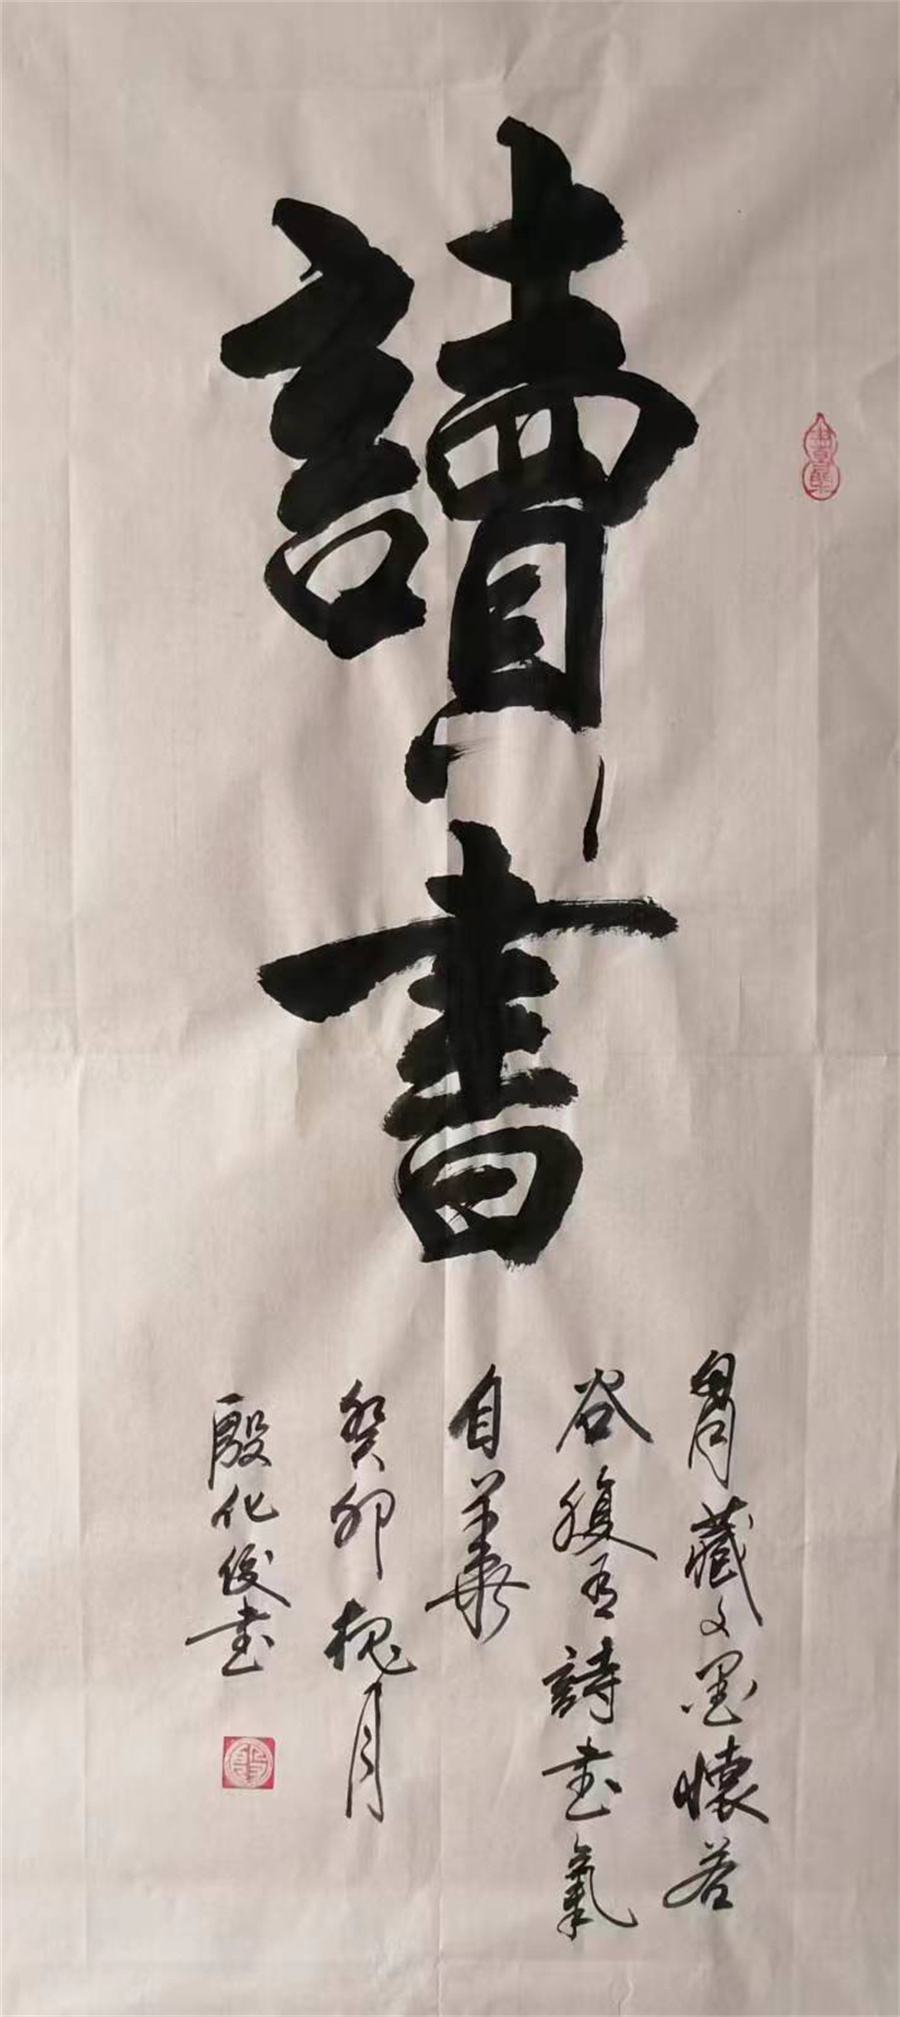 讀
書
胷藏文墨懷若
谷腹有詩書氣
自華
癸卯槐月
殷化俊書